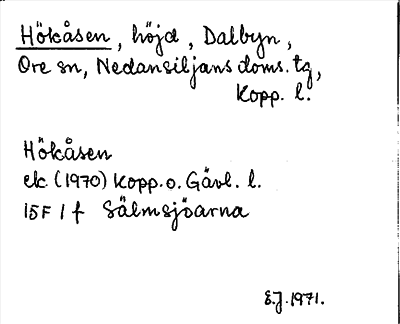 Hökåsen, höjd, Dalbyn,
Ore sn, Nedansiljans doms. tg,
Kopp. l.
Hökåsen
ek. (1970) Kopp. o. Gävl. l.
15F 1 f Sälmsjöarna
E.J. 1971.